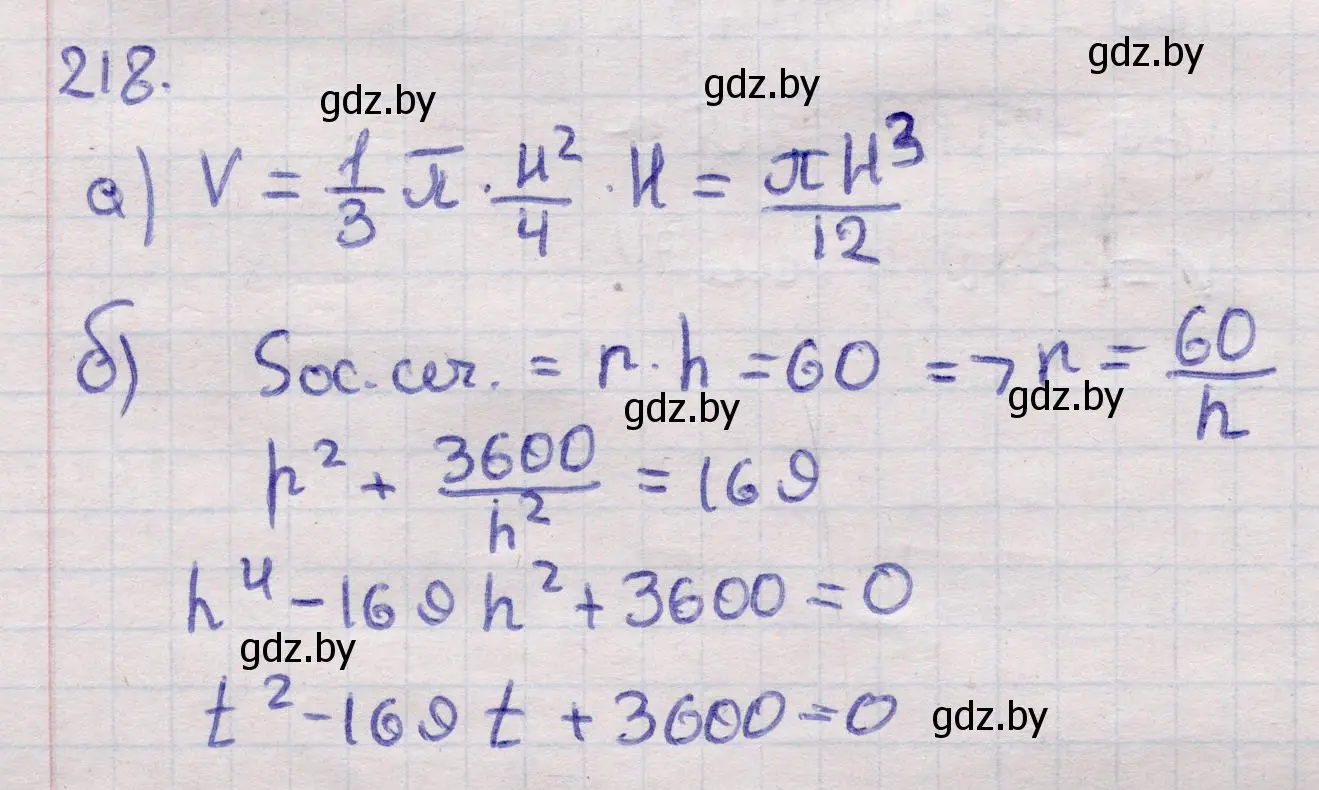 218.
gdz.by gdz.by gdz.by
а) V = 1/3 π · H²/4 · H = πH³/12
б) Sос.сеч. = r · h = 60 => r = 60/h
gdz.by gdz.by
h² + 3600/h² = 169
h⁴ - 169 h² + 3600 = 0
gdz.by
t² - 169 t + 3600 = 0 gdz.by